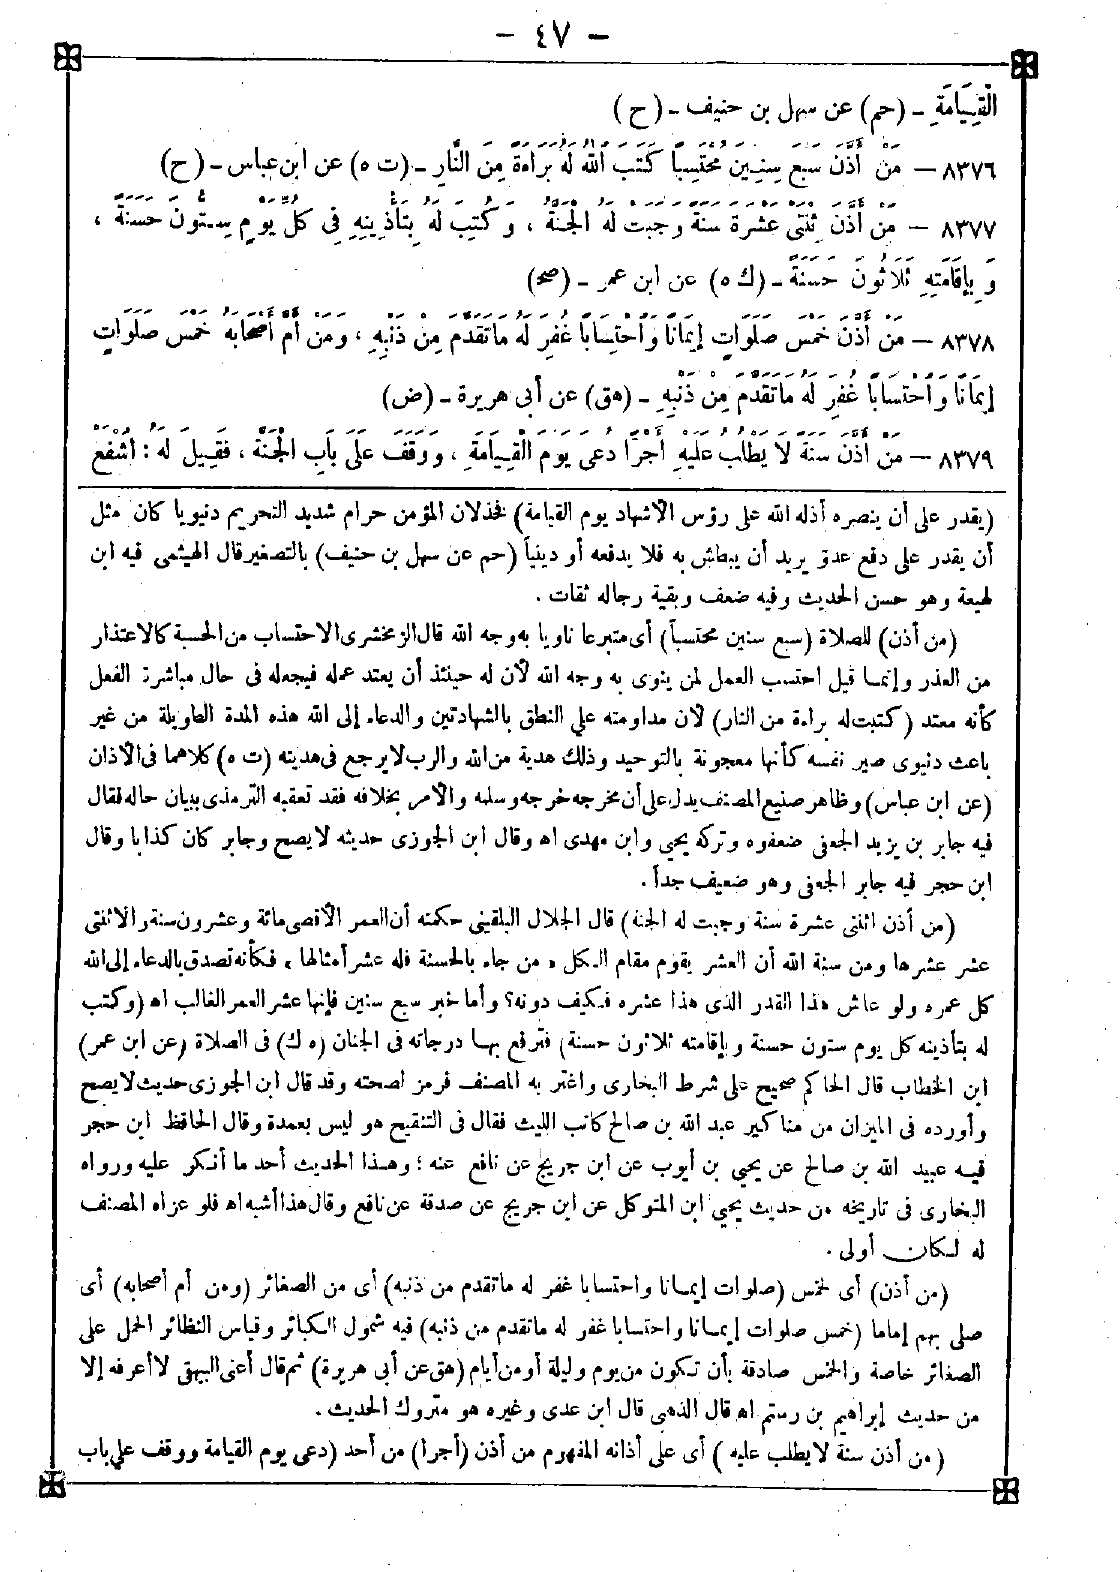 - ٤٧ -
الْقِيَامَةِ - (حم) عن سهل بن حنيف - (ح)
٨٣٧٦ - مَنْ أَذَّنَ سَبْعَ سِنِينَ مُحْتَسِبًا كَتَبَ اللهُ لَهُ بَرَاءَةً مِنَ النَّارِ - (ت ه) عن ابن عباس - (ح)
٨٣٧٧ - مَنْ أَذَّنَ ثِنْتَيْ عَشْرَةَ سَنَةً وَجَبَتْ لَهُ الْجَنَّةُ ، وَكُتِبَ لَهُ بِتَأْذِينِهِ فِي كُلِّ يَوْمٍ سِتُّونَ حَسَنَةً ،
وَبِإِقَامَتِهِ ثَلَاثُونَ حَسَنَةً - (ك ه) عن ابن عمر - (صح)
٨٣٧٨ - مَنْ أَذَّنَ خَمْسَ صَلَوَاتٍ إِيمَانًا وَاحْتِسَابًا غُفِرَ لَهُ مَا تَقَدَّمَ مِنْ ذَنْبِهِ ، وَمَنْ أَمَّ أَصْحَابَهُ خَمْسَ صَلَوَاتٍ
إِيمَانًا وَاحْتِسَابًا غُفِرَ لَهُ مَا تَقَدَّمَ مِنْ ذَنْبِهِ - (هق) عن أبي هريرة - (ض)
٨٣٧٩ - مَنْ أَذَّنَ سَنَةً لَا يَطْلُبُ عَلَيْهِ أَجْرًا دُعِيَ يَوْمَ الْقِيَامَةِ ، وَوَقَفَ عَلَى بَابِ الْجَنَّةِ ، فَقِيلَ لَهُ : اشْفَعْ
(يقدر على أن ينصره أذله الله على رؤس الأشهاد يوم القيامة) فخذلان المؤمن حرام شديد التحريم دنيويا كان مثل
أن يقدر على دفع عدو يريد أن يبطش به فلا يدفعه أو دينياً (حم عن سهل بن حنيف) بالتصغير قال الهيثمي فيه ابن
لهيعة وهو حسن الحديث وفيه ضعف وبقية رجاله ثقات .
(من أذن) للصلاة (سبع سنين محتسباً) أى متبرعا ناويا به وجه الله قال الزمخشرى الاحتساب من الحسبة كالاعتذار
من العذر وإنما قيل احتسب العمل لمن ينوى به وجه الله لأن له حينئذ أن يعتد عمله فيجعله فى حال مباشرة الفعل
كأنه معتد (كتبت له براءة من النار) لأن مداومته على النطق بالشهادتين والدعاء إلى الله هذه المدة الطويلة من غير
باعث دنيوى صير نفسه كأنها معجونة بالتوحيد وذلك هدية من الله والرب لا يرجع فى هديته (ت ه) كلاهما فى الأذان
(عن ابن عباس) وظاهر صنيع المصنف يدل على أن مخرجه خرجه وسلمه والأمر بخلافه فقد تعقبه الترمذى ببيان حاله فقال
فيه جابر بن يزيد الجعفى ضعفوه وتركه يحي وابن مهدى اه وقال ابن الجوزى حديثه لا يصح وجابر كان كذابا وقال
ابن حجر فيه جابر الجعفى وهو ضعيف جداً .
(من أذن اثنتى عشرة سنة وجبت له الجنة) قال الجلال البلقينى حكمته أن العمر الأقصى مائة وعشرون سنة والاثنتى
عشر عشرها ومن سنة الله أن العشر يقوم مقام الكل « من جاء بالحسنة فله عشر أمثالها » فكأنه تصدق بالدعاء إلى الله
كل عمره ولو عاش هذا القدر الذى هذا عشره فكيف دونه؟ وأما خبر سبع سنين فإنها عشر العمر الغالب اه (وكتب
له بتأذينه كل يوم ستون حسنة وبإقامته ثلاثون حسنة) فترفع بها درجاته فى الجنان (ه ك) فى الصلاة (عن ابن عمر)
ابن الخطاب قال الحاكم صحيح على شرط البخارى واغتر به المصنف فرمز لصحته وقد قال ابن الجوزى حديث لا يصح
وأورده فى الميزان من مناكير عبد الله بن صالح كاتب الليث فقال فى التنقيح هو ليس بعمدة وقال الحافظ ابن حجر
فيه عبيد الله بن صالح عن يحي بن أيوب عن ابن جريج عن نافع عنه ؛ وهذا الحديث أحد ما أنكر عليه ورواه
البخارى فى تاريخه من حديث يحي ابن المتوكل عن ابن جريج عن صدقة عن نافع وقال هذا أشبه اه فلو عزاه المصنف
له لكان أولى .
(من أذن) أى لخمس (صلوات إيمانا واحتسابا غفر له ما تقدم من ذنبه) أى من الصغائر (ومن أم أصحابه) أى
صلى بهم إماما (خمس صلوات إيمانا واحتسابا غفر له ما تقدم من ذنبه) فيه شمول الكبائر وقياس النظائر الحمل على
الصغائر خاصة والخمس صادقة بأن تكون من يوم وليلة أو من أيام (هق عن أبى هريرة) ثم قال أعنى البيهقى لا أعرفه إلا
من حديث إبراهيم بن رستم اه قال الذهبى قال ابن عدى وغيره هو متروك الحديث .
(من أذن سنة لا يطلب عليه) أى على أذانه المفهوم من أذن (أجراً) من أحد (دعى يوم القيامة ووقف على باب